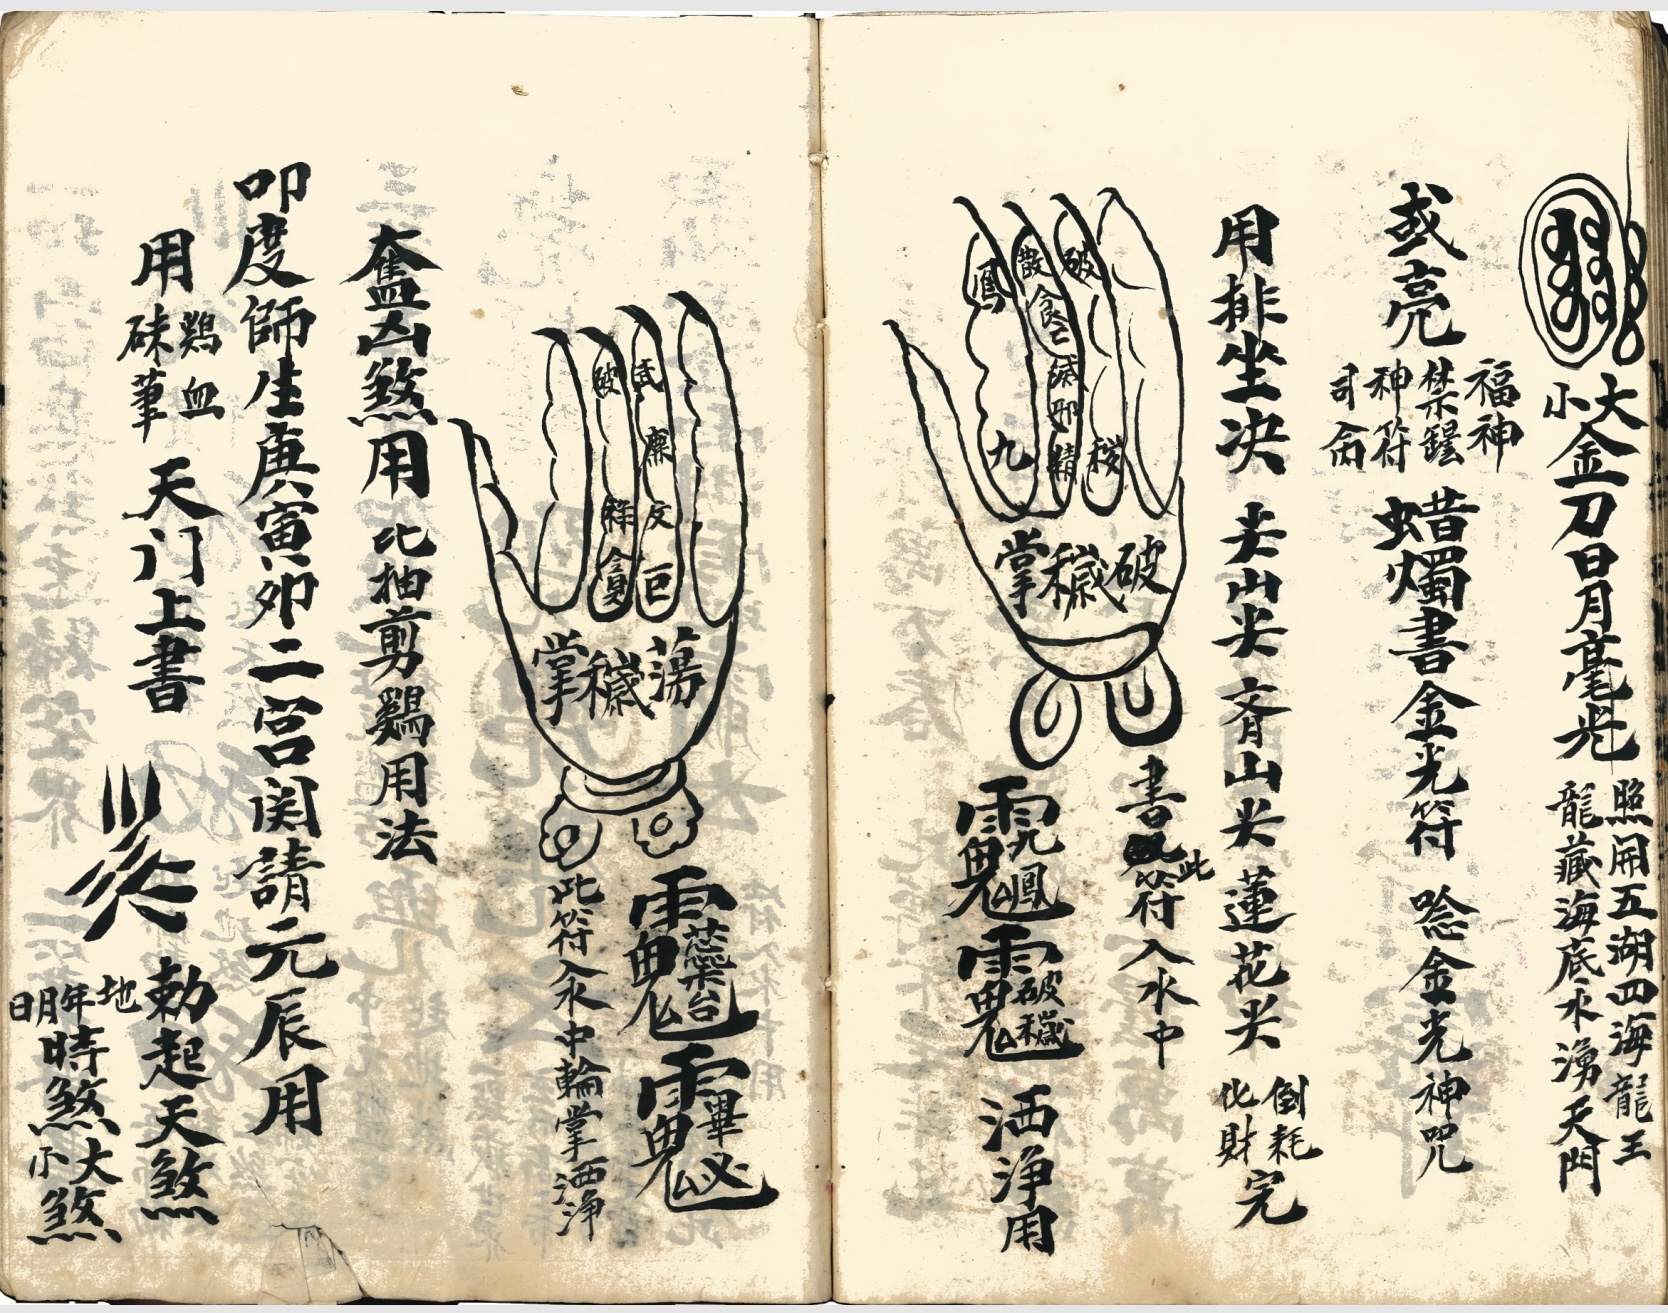 大小金刀日月毫光
照開五湖四海龍王
龍藏海底水湧天門
或亮
福神
禁鏗
神符
司命
蜡燭書金光符
唸金光神咒
用排坐决
尖山尖
山尖
蓮花尖
倒耗
化財
完
破
散
鳳
貪亡滅邪精
穢
九
破穢掌
書此符入水中
九鳳
破穢
洒淨用
武
破
廉
文
巨
祿
貪
蕩穢掌
蕊梁台
畢
此符入水中輪掌洒淨
奮凶煞用
比抽剪鷄用法
叩度師生庚寅卯二宮関請元辰用
用
鷄血
硃筆
天门上書
勅起天煞
地年月日時煞
大小煞